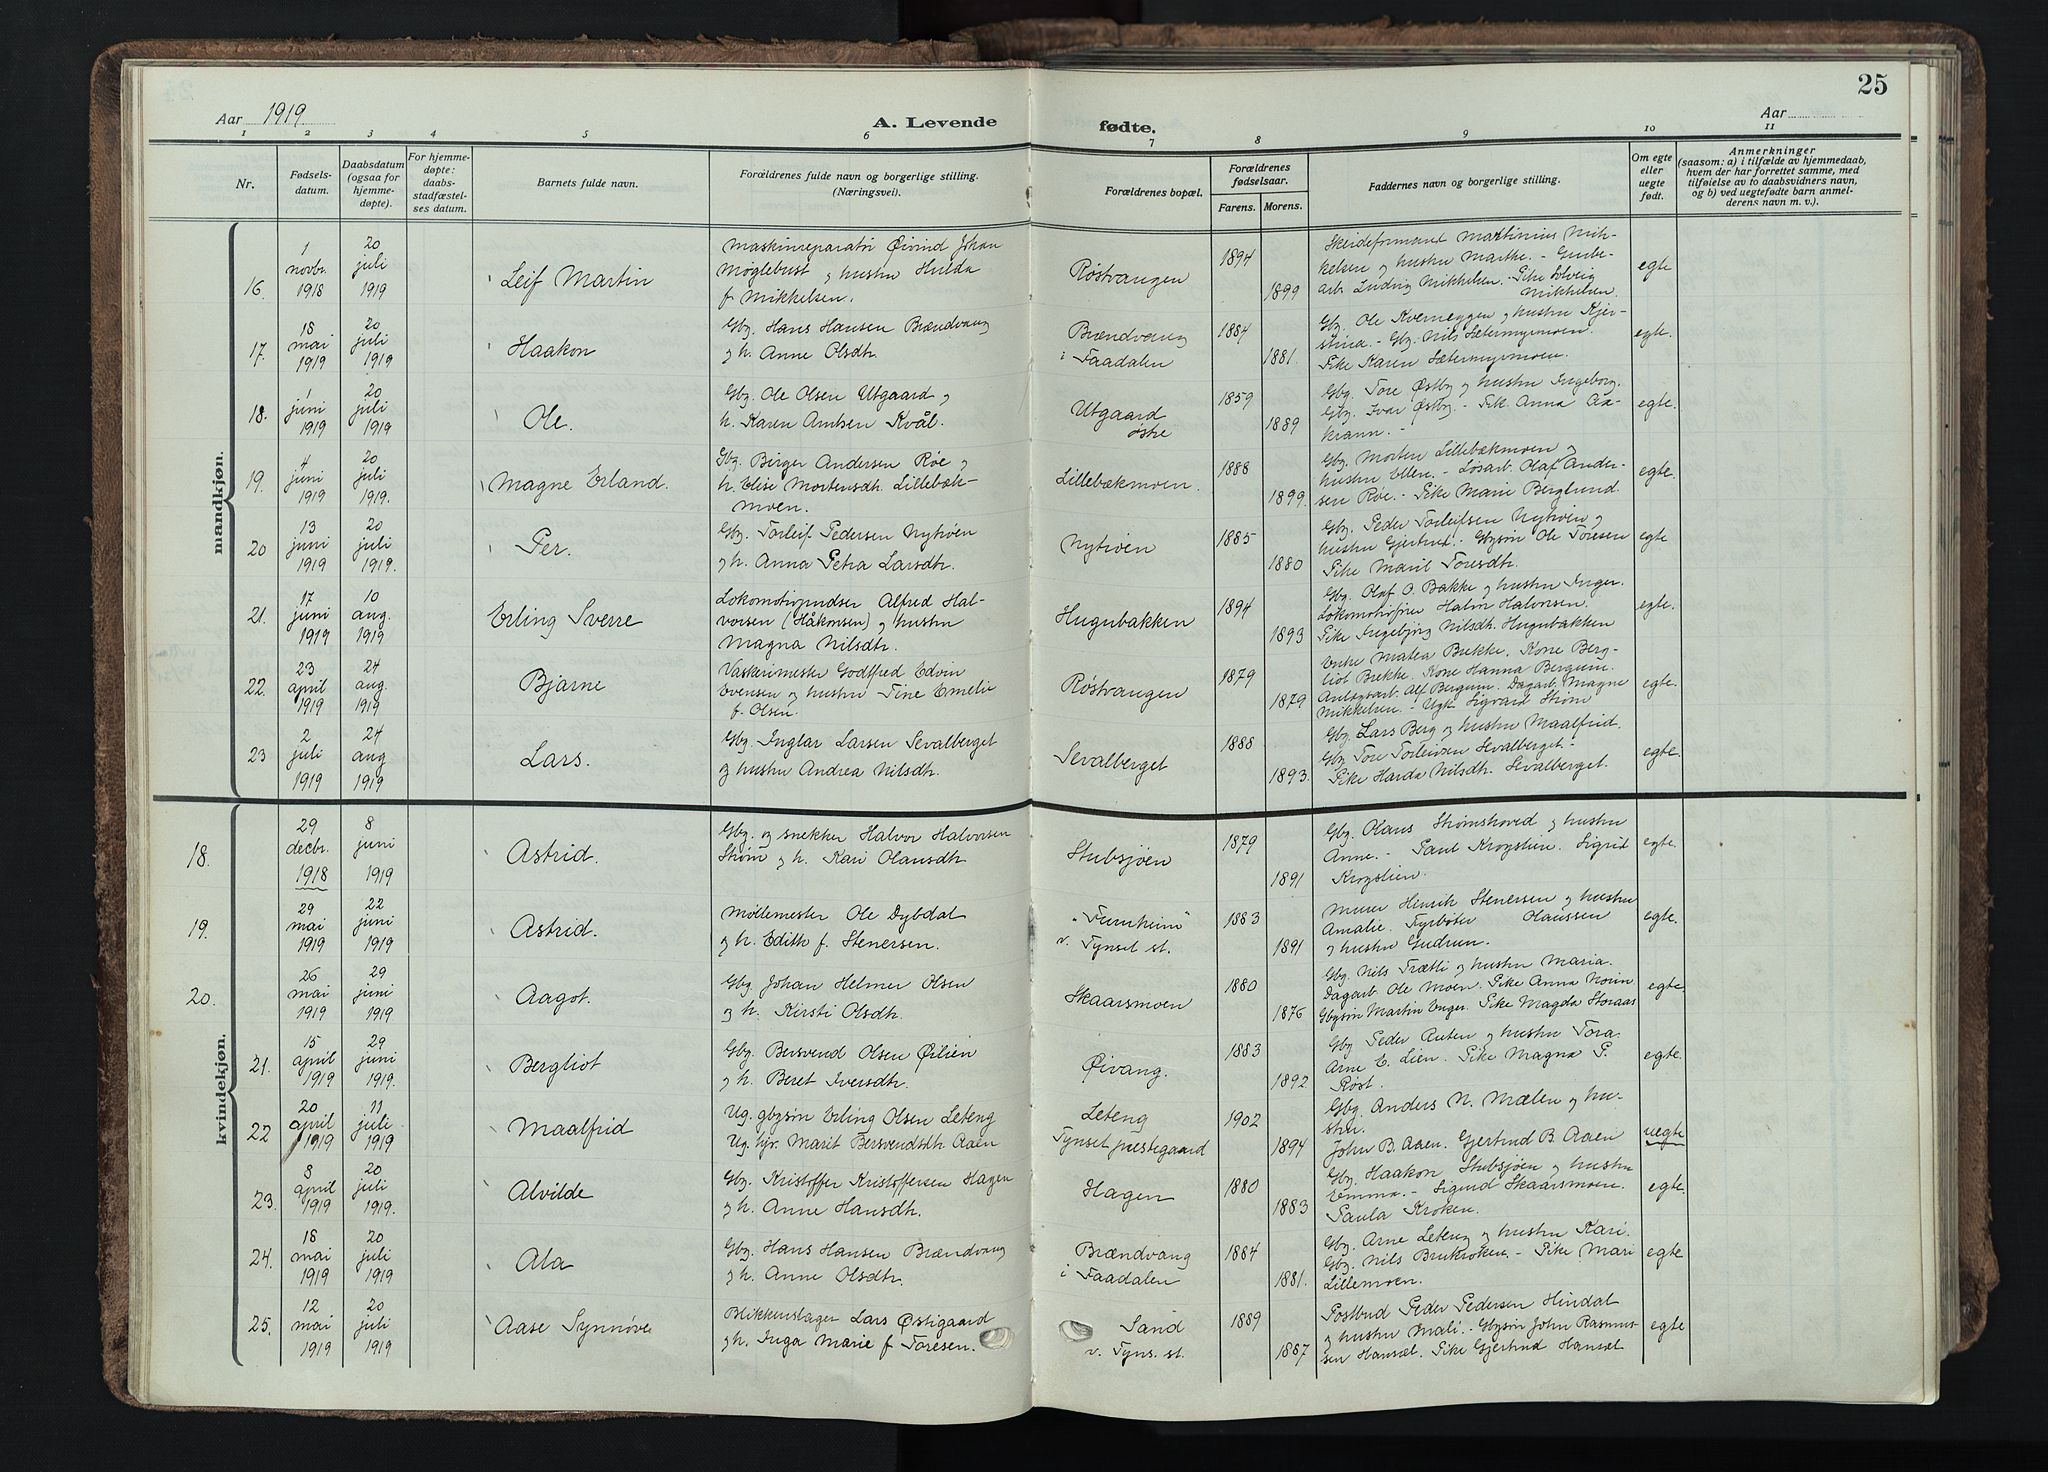 25
Aar 1919
A. Levende
fødte.
Aar
1 2 3 4 5 6 7 8 9 10 11
Nr.
Fødsels-
datum.
Daabsdatum
(ogsaa for
hjemme-
døpte).
For hjemme-
døpte:
daabs-
stadfæstel-
ses datum.
Barnets fulde navn.
Forældrenes fulde navn og borgerlige stilling.
(Næringsvei).
Forældrenes bopæl.
Forældrenes
fødselsaar.
Farens. Morens.
Faddernes navn og borgerlige stilling.
Om egte
eller
uegte
født.
Anmerkninger
(saasom: a) i tilfælde av hjemmedaab,
hvem der har forrettet samme, med
tilføielse av to daabsvidners navn,
og b) ved uegtefødte barn anmel-
derens navn m. v.).
mandkjøn.
16.
1
novbr.
1918
20
juli
1919
Leif Martin
Maskinreparatør Øivind Johan
Møglebust og hustru Hulda
f. Mikkelsen.
Røstvangen
1894
1899
Skeideformand Martinius Mik-
kelsen og hustru Marthe. - Grube-
arb. Ludvig Mikkelsen. Pike Solveig
Mikkelsen.
egte
17.
18
mai
1919
20
juli
1919
Haakon
Gbg. Hans Hansen Brændvang
og h. Anne Olsdtr.
Brændvang
i Faadalen
1884
1881.
Gbg. Ole Kverneggen og hustru Kjer-
stina. - Gbg. Nils Sætermyrmoen.
Pike Karen Sætermyrmoen.
egte.
18.
1
juni
1919
20
juli
1919
Ole.
Gbg. Ole Olsen Utgaard og
h. Karen Arntsen Kvål.
Utgaard
østre
1859
1889
Gbg. Tore Østby og hustru Ingeborg.
Gbg. Ivar Østby. - Pike Anna Aa-
krann. -
egte.
19.
4
juni
1919
20
juli
1919.
Magne Erland.
Gbg. Birger Andersen Røe og
h. Elise Mortensdtr. Lillebæk-
moen.
Lillebækmoen.
1888
1899.
Gbg. Morten Lillebækmoen og
hustru Ellen. - Løsarb. Olaf Ander-
sen Røe. - Pike Marie Berglund.
egte.
20
13
juni
1919
20
juli
1919.
Per.
Gbg. Torleif Pedersen Nytrøen
og h. Anna Petra Larsdtr.
Nytrøen
1885
1880
Gbg. Peder Torleifsen Nytrøen og
hustru Gjertrud. - Gbgsøn Ole Toresen
Pike Marit Toresdtr.
egte
21.
17
juni
1919
10
aug.
1919
Erling Sverre
Lokomotivpudser Alfred Hal-
vorsen (Håkonsen) og hustru
Magna Nilsdtr.
Hugubakken
1894
1893
Gbg. Olaf O. Bakke og hustru Inger.
Lokomotivfører Halvor Halvorsen.
Pike Ingebjørg Nilsdtr. Hugubakken
egte.
22.
23
april
1919
24
aug.
1919
Bjarne
Vaskerimester Godtfred Edvin
Evensen og hustru Tine Emelie
f. Olsen.
Røstvangen
1879
1879
Enke Matea Brekke. Kone Berg-
liot Brekke. Kone Hanna Bergum.
Anlægsarb. Alf Bergum. Dagarb. Magne
Mikkelsen. - Ugk. Sigvard Strøm
egte.
23
2
juli
1919
24
aug
1919
Lars.
Gbg. Inglar Larsen Sevalberget
og hustru Andrea Nilsdtr.
Sevalberget
1888
1893.
Gbg Lars Berg og hustru Maalfrid.
Gbg Tore Torleivsen Sevalberget -
Pike Harda Nilsdtr. Sevalberget.
egte.
kvindekjøn.
18.
29
decbr.
1918
8
juni
1919
Astrid.
Gbg. og snekker Halvor Halvorsen
Strøm og h. Kari Olausdtr.
Stubsjøen
1879
1891
Gbg. Olaus Strømshoved og hustru
Anne. - Paul Krogstien. Sigrid
Krogstien.
egte.
19.
29
mai
1919
22
juni
1919
Astrid.
Møllemester Ole Dybdal
og h. Edith f. Stenersen.
"Furuheim"
v. Tynset st.
1883
1891
Murer Henrik Stenersen og hustru
Amalie. Fyrbøter Olaussen
og hustru Gudrun.
egte.
20.
26
mai
1919
29
juni
1919
Aagot.
Gbg. Johan Helmer Olsen
og h. Kirsti Olsdtr.
Skaarsmoen
1880
1876
Gbg. Nils Trætli og hustru Maria.
Dagarb. Ole Moen. Pike Anna Moen
Gbgsøn Martin Unger. Pike Magda Storaas
egte.
21.
15
april
1919
29
juni
1919.
Bergliot
Gbg. Bersvend Olsen Øilien
og h. Beret Iversdtr.
Øivang.
1883
1892
Gbg Peder Auten og hustru Tora.
Arne E. Lien. Pike Magna P.
Røst.
egte.
22
20
april
1919
11
juli
1919
Maalfrid
Ug. gbgsøn Erling Olsen Leteng
Ug. hjr. Marit Bersvendsdtr. Aaen
Leteng
Tynset prestegaard
1902
1894
Gbg. Anders N. Mælen og hu-
stru.
John B. Aaen. Gjertrud B. Aaen
uegte
23.
8
april
1919
20
juli
1919.
Alvilde
Gbg. Kristoffer Kristoffersen Hagen
og h. Anne Hansdtr.
Hagen
1880
1883
Gbg. Haakon Stubsjøen og hustru
Emma. - Sigurd Skaarsmoen.
Paula Kroken.
egte.
24.
18
mai
1919
20
juli
1919
Ala
Gbg. Hans Hansen Brændvang
og h. Anne Olsdtr.
Brændvang
i Faadalen
1884
1881.
Gbg. Arne Leteng og hustru Kari.
Gbg. Nils Brukroken - Pike Mari
Lillemoen.
egte
25.
12
mai
1919
20
juli
1919
Aase Synnøve
Blikkenslager Lars Østigaard
og h. Inga Marie f Toresen.
Sand
v. Tyns. st.
1889
1887
Postbud Peder Pedersen Hindal
og hustru Mali. - Gbgsøn John Rasmus-
sen Hansæl. Pike Gjertrud Hansæl
egte